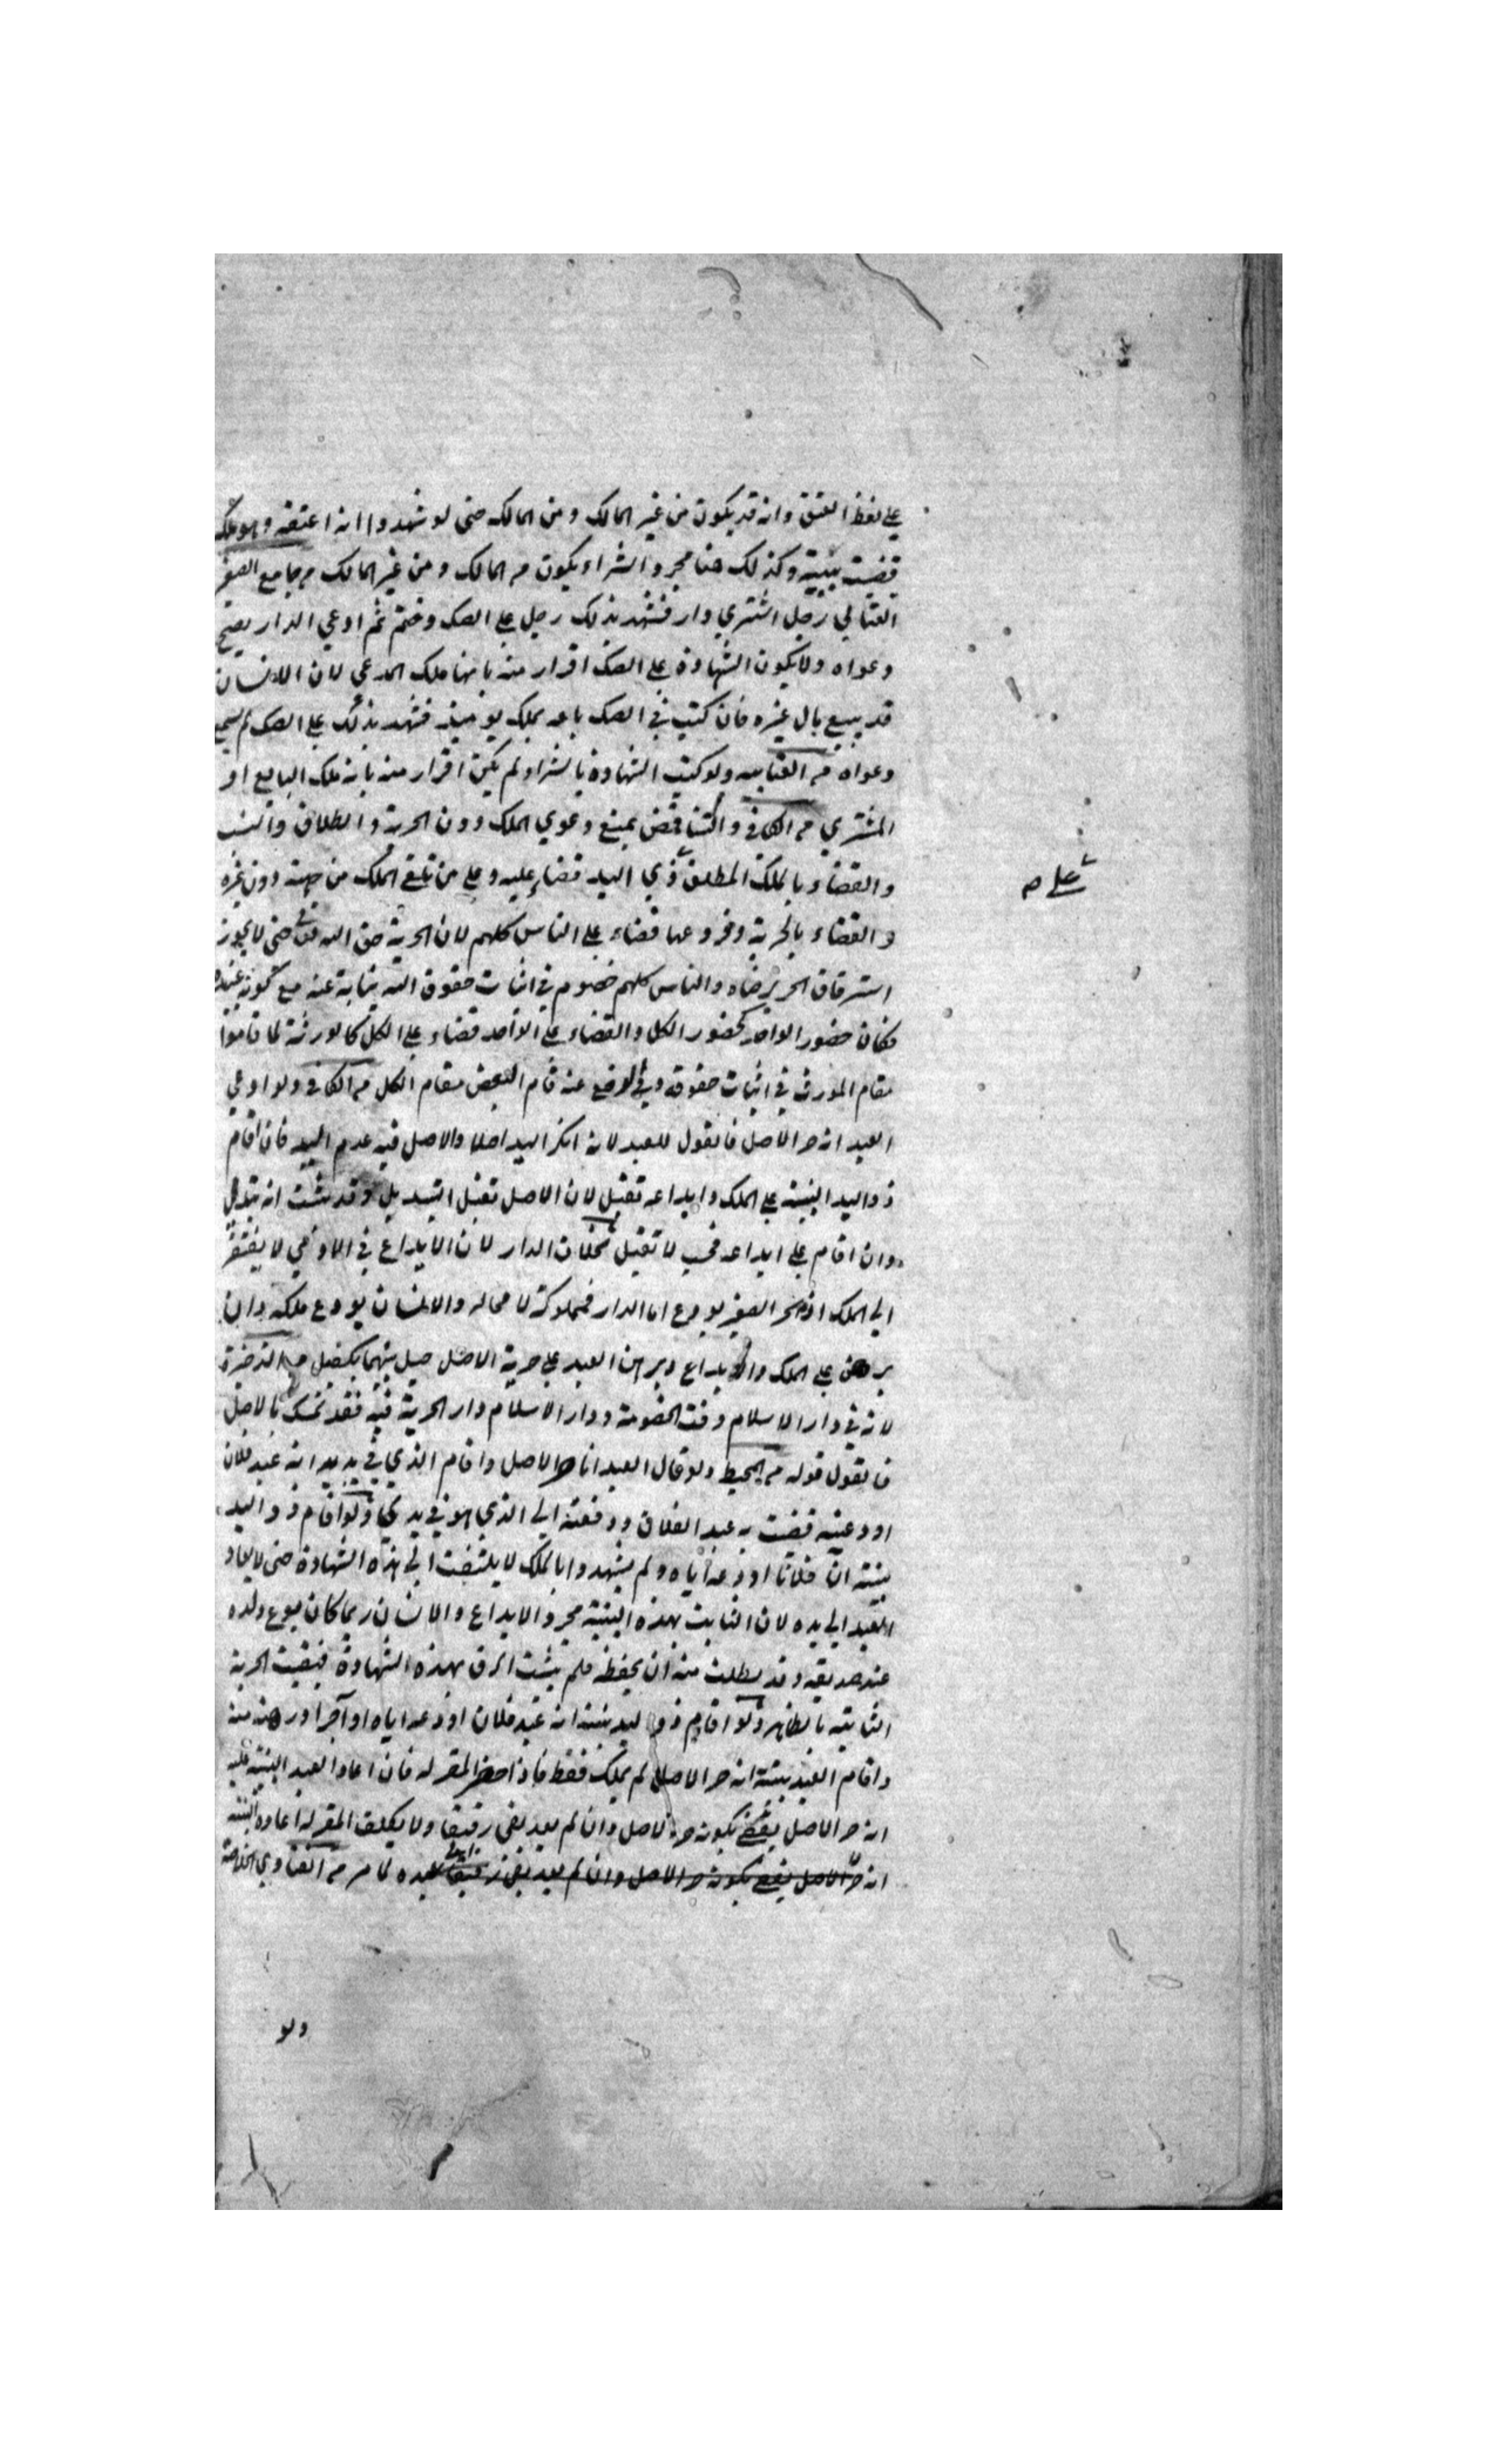 على لفظ العتق وانه قد يكون من غير المالك ومن المالك حتى لو شهدوا انه اعتقه وهو يملكه
قضيت ببينته وكذلك هنا مجرد الشراء يكون من المالك ومن غير المالك من جامع الصغير
العتابي رجل اشتري دار فشهد بذلك رجل على الصك وختم ثم ادعي الدار يصح
دعواه ولا يكون الشهادة على الصك اقرار منه بانها ملك المدعي لان الانسان
قد يبيع مال غيره فان كتب في الصك باعه بملك يومئذ فشهد بذلك على الصك لم يسمع
دعواه من العتابيه ولو كتب الشهادة بالشراء لم يكن اقرار منه بانه ملك البايع او
المشتري من الكافي والتناقض يمنع دعوي الملك دون الحرية والطلاق والنسب
والقضاء بالملك المطلق ذي اليد قضاء عليه وعلى من تلقى الملك من جهته دون غيره
على صح
والقضاء بالحرية وفروعها قضاء على الناس كلهم لان الحرية حق الله تعالى حتى لا يجوز
استرقاق الحر برضاه والناس كلهم خصوم في اثبات حقوق الله نيابة عنه مع كونهم عبيده
فكان حضور الواحد كحضور الكل والقضاء على الواحد قضاء على الكل كالورثة لما قاموا
مقام المورث في اثبات حقوقه وفي الدفع عنه قام البعض مقام الكل من الكافي ولو ادعي
العبد انه حر الاصل فالقول للعبد لانه انكر اليد اصلا والاصل فيه عدم اليد فان اقام
ذو اليد البينة على الملك وايداعه تقبل لان الاصل تقبل التبديل وقد يثبت انه تبدل
وان اقام على ايداعه فحسب لا تقبل بخلاف الدار لان الايداع في الادمي لا يفتقر
الي الملك اذ الحر الصغير يودع اما الدار فمملوكة لا محاله والانسان يودع ملكه وان
برهن على الملك والايداع وبرهن العبد على حرية الاصل حيل بينهما بكفيل من الذخيرة
لانه في دار الاسلام وقت الخصومة ودار الاسلام دار الحرية فيه فقد تمسك بالاصل
فالقول قوله من المحيط ولو قال العبد انا حر الاصل واقام الذي في يديه انه عبد فلان
اودعنيه قضيت به عبد الفلان ودفعته الي الذي هو في يدي ولو اقام ذو اليد
بينته ان فلانا اودعه اياه ولم يشهدوا بالملك لا يلتفت الي هذه الشهادة حتى لا يعاد
العبد الي يده لان الثابت بهذه البينة مجرد الايداع والانسان ربما كان يودع ولده
عند صديقه وقد يطلب منه ان يحفظه فلم يثبت الرق بهذه الشهادة فبقيت الحرية
الثابته بالظاهر ولو اقام ذو اليد بينته انه عبد فلان اودعه اياه او آجر او رهنه منه
واقام العبد بينته انه حر الاصل لم يملك فقط فاذا حضر المقر له فان اعاد العبد البينة عليه
انه حر الاصل يقضي بكونه حر الاصل وان لم يعد بقي رقيقا ولا يكلف المقر له اعادة البينة
انه حر الاصل يقضي بكونه حر الاصل وان لم يعد بقي رقيقا عبده لما مر من الفتاوي الخلاصة
ولو